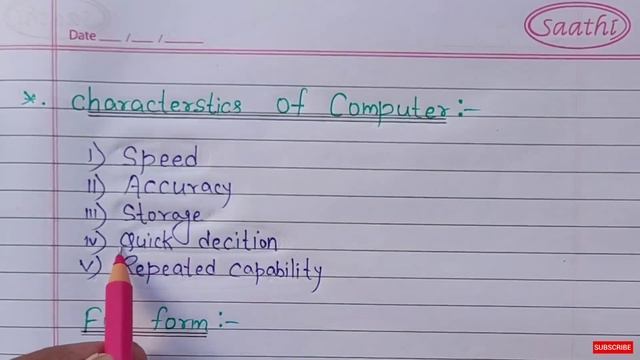 Saathi
Date __ / __ / ____
*. characterstics of Computer:-
i) Speed
ii) Accuracy
iii) Storage
iv) Quick decition
v) Repeated capability
form:-
SUBSCRIBE